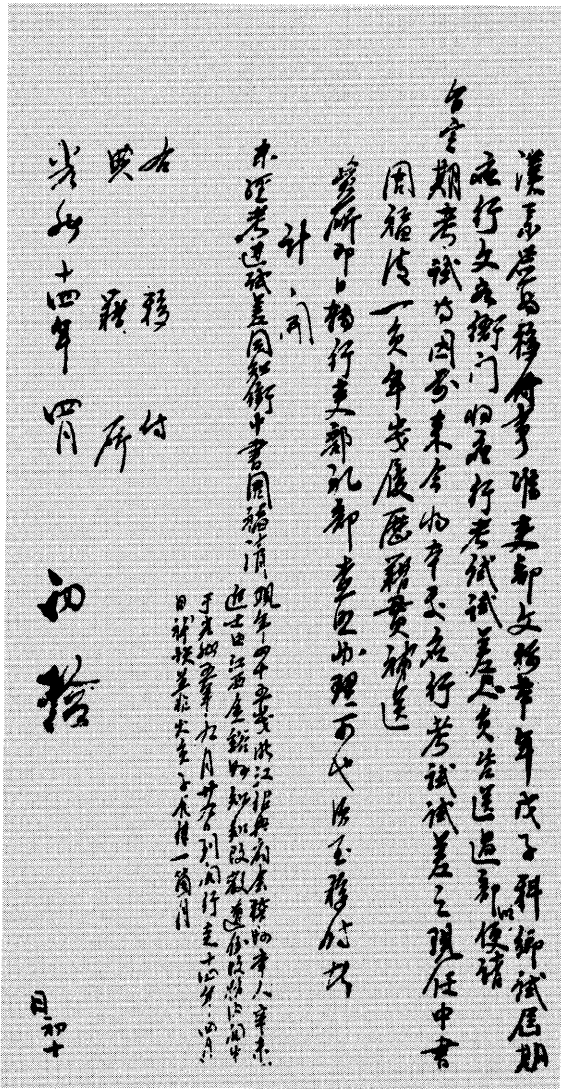 漢票簽為移付事准吏部文稱本年戊子科鄉試屆期
應行文各衙門將應行考試試差人員咨送過部以便請
旨定期考試等因前來今將本處應行考試試差之現任中書
周福清一員年歲履歷籍貫補送
貴研即日轉行吏部禮部查照辦理可也須至移付者
計開
未經考過試差同知銜中書周福清現年四十五歲浙江紹興府會稽縣人辛未
進士由江西金谿縣知縣改教遵例改捐內閣中書
于光緒五年九月廿九日到閣行走十四年四月
日補缺並非欠資子長捷一箇月
右移付
典籍廳
光緒十四年四月初十
初驗
日初十